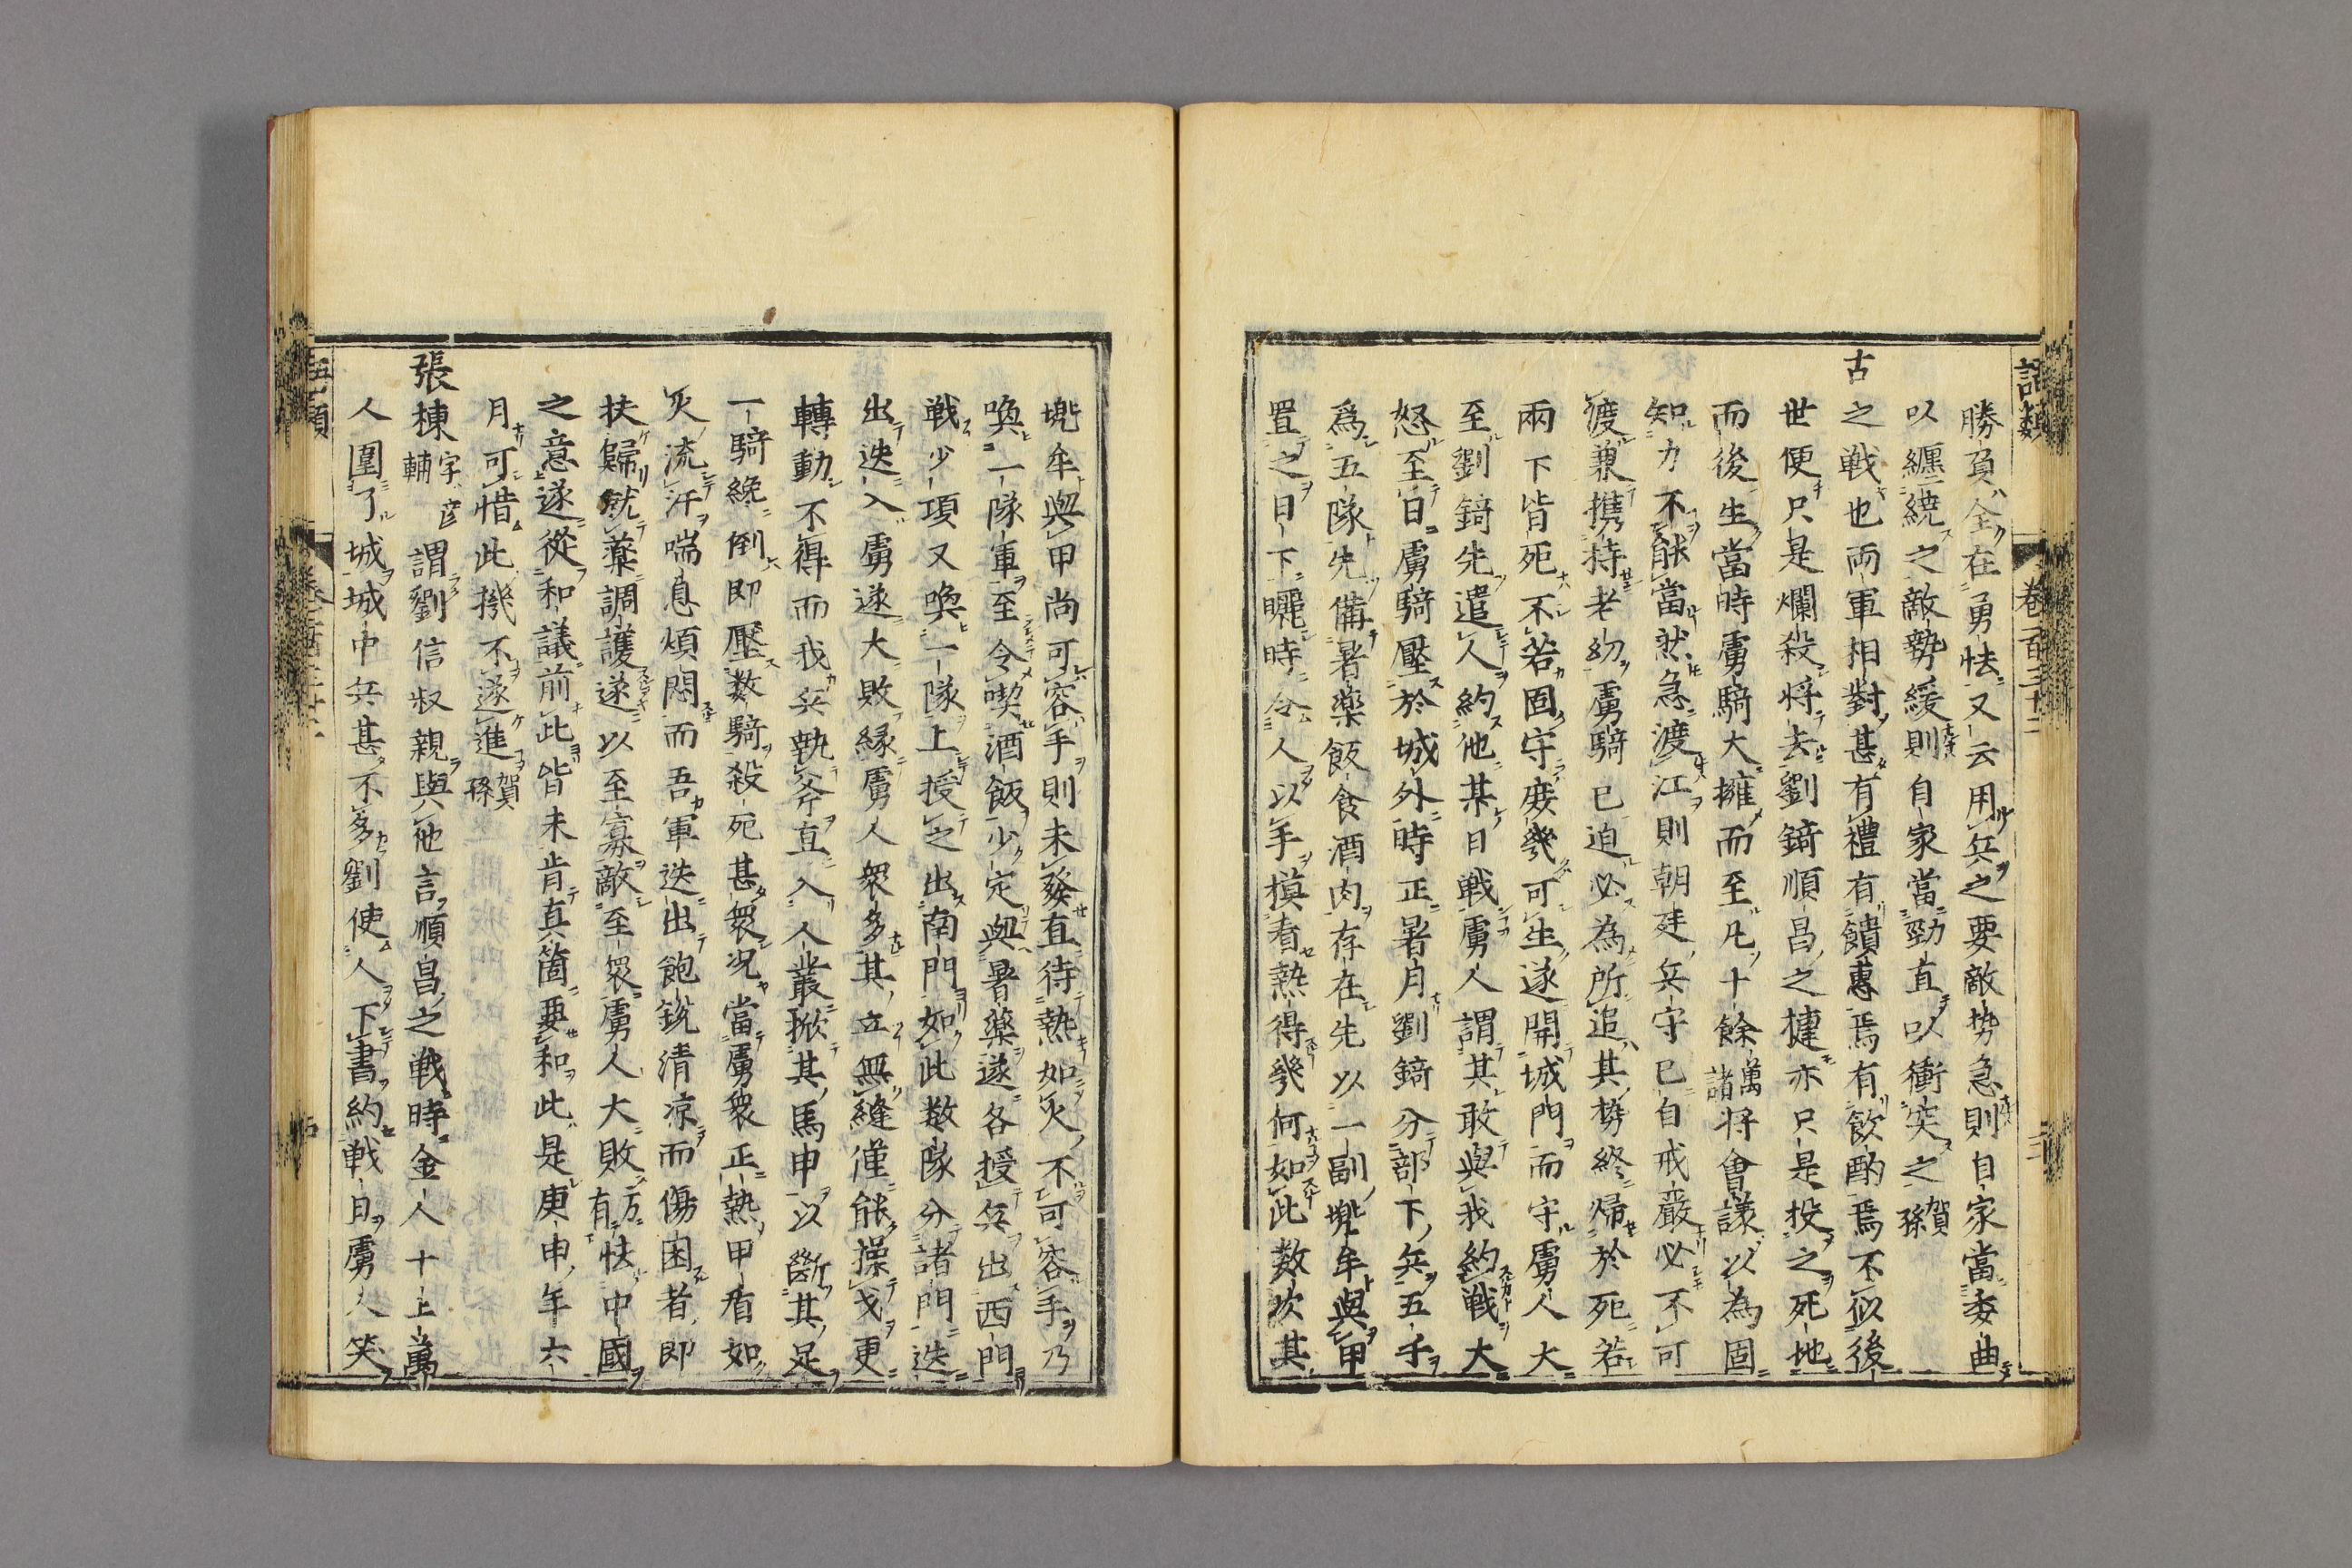 語類 卷百三十二
勝負全在勇怯又云用兵之要敵勢急則自家當委曲
以纒繞之敵勢緩則自家當勁直以衝突之賀孫
古之戦也両軍相對甚有禮有饋惠焉有飲酌焉不似後
世便只是爛殺将去劉錡順昌之捷亦只是投之死地
而後生當時虜騎大擁而至凡十餘萬諸将會議以為固
知力不能當然急渡江則朝廷兵守已自戒嚴必不可
渡兼携持老幼虜騎已迫必為所追其勢終帰於死若
兩下皆死不若固守庻幾可生遂開城門而守虜人大
至劉錡先遣人約他某日戦虜人謂其敢與我約戦大
怒至日虜騎壓於城外時正暑月劉錡分部下兵五千
爲五隊先備暑藥飯食酒肉存在先以一副兠牟與甲
置之日下曬時令人以手摸看熱得幾何如此数次其
兠牟與甲尚可容手則未發直待熱如火不可容手乃
喚一隊軍至令喫酒飯少定與暑藥遂各授兵出西門
戦少項又喚一隊上授之出南門如此数隊分諸門迭
出迭入虜遂大敗縁虜人衆多其立無縫僅能操戈更
轉動不得而我兵執斧直入人叢掀其馬甲以斷其足
一騎纔倒即壓数騎殺死甚衆况當虜衆正熱甲盾如
火流汗喘息煩悶而吾軍迭出飽銳清凉而傷困者即
扶歸就藥調護遂以至寡敵至衆虜人大敗方有怯中國
之意遂從和議前此皆未肯真箇要和此是庚申年六
月可惜此機不遂進賀孫
張棟字彦輔謂劉信叔親與他言順昌之戦時金人十上萬
人圍了城城中兵甚不多劉使人下書約戦日虜人笑